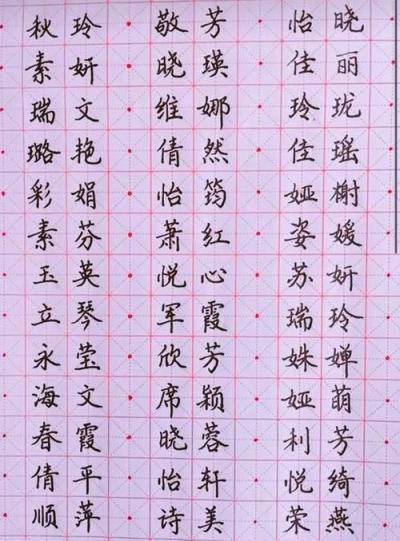 秋玲 敬芳 怡晓
素妍 晓瑛 佳丽
瑞文 维娜 玲珑
璐艳 倩然 佳瑶
彩娟 怡筠 娅榭
素芬 萧红 姿媛
玉英 悦心 苏妍
立琴 军霞 瑞玲
永莹 欣芳 姝婵
海文 席颖 娅萌
春霞 晓蓉 利芳
倩平 怡轩 悦绮
顺萍 诗美 荣燕